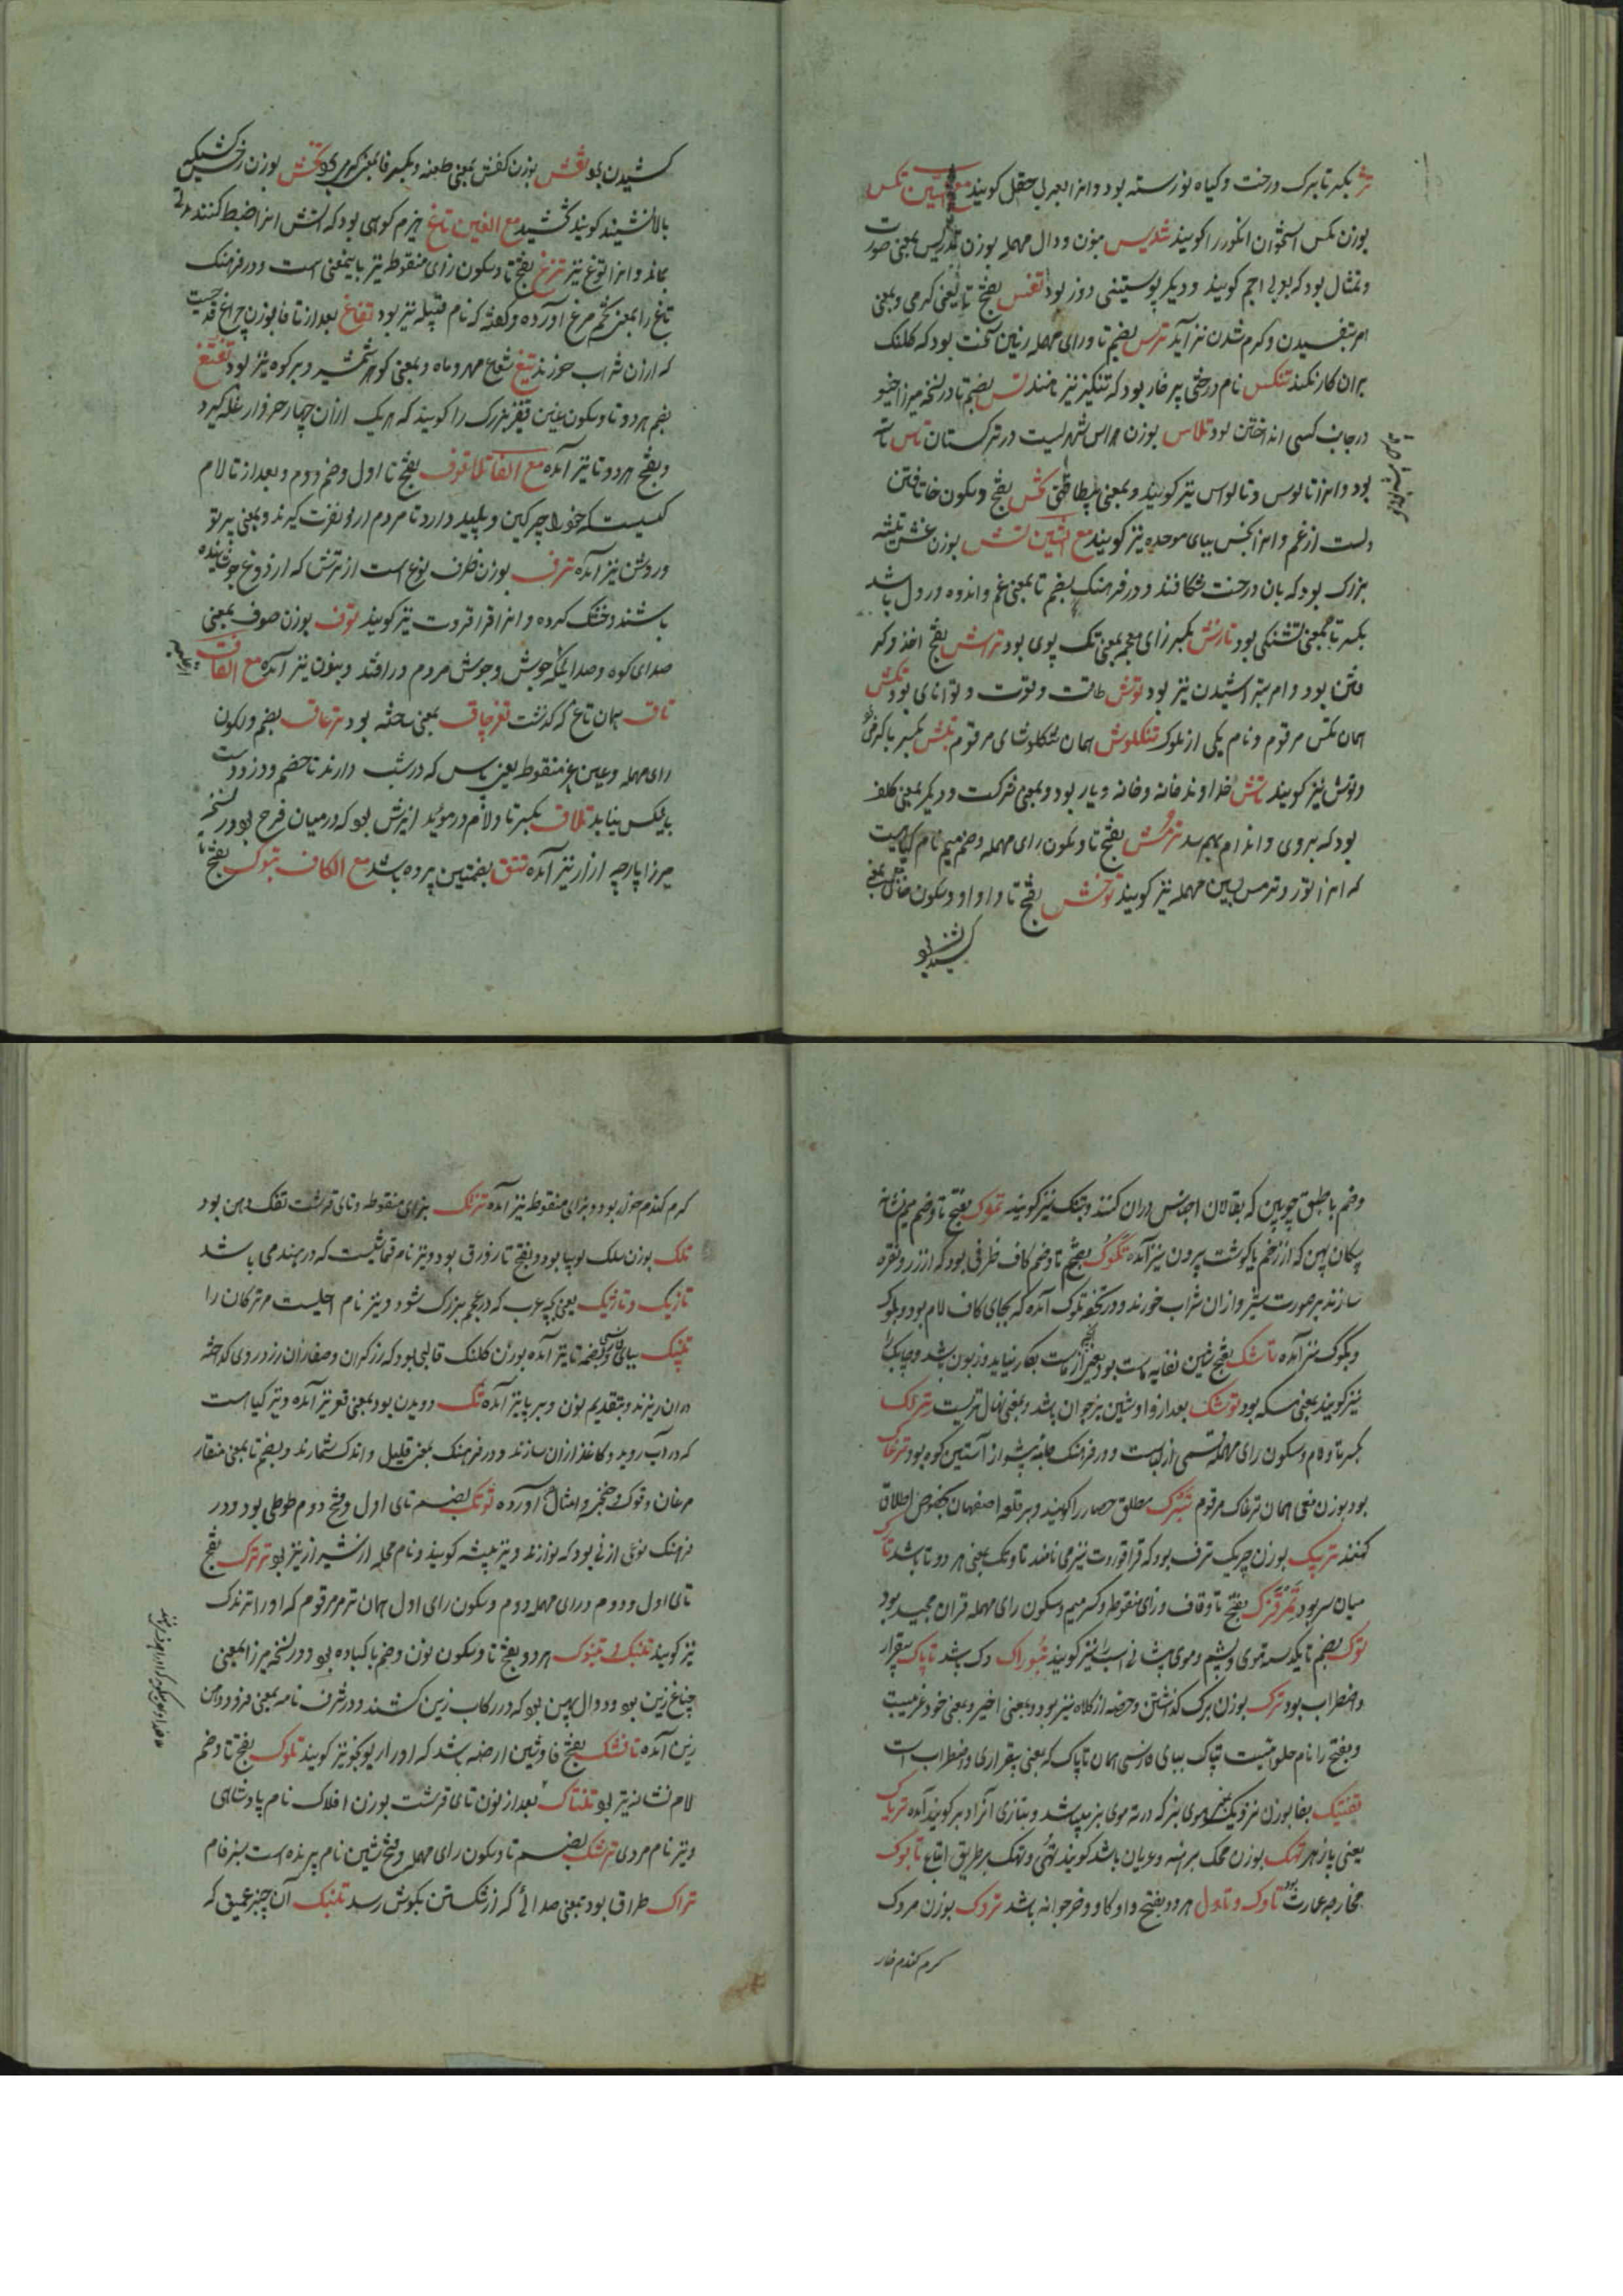 تژ بکسر تا برک درخت و کیاه نو رسته بود و انرا بعربی حقل کویند مع السین تکس
بوزن مکس استخوان انکور را کویند تندیس بنون و دال مهمله بوزن تلبیس بمعنی صورت
و تمثال بود که بعربی اجم کویند و دیکر پوستینی دوز بود تفس بفتح تا یعنی کرمی و بمعنی
امر بتفسیدن و کرم شدن نیز آید ترس بضم تا و رای مهمله زمین سخت بود که کلنک
بران کار نکند تنکس نام درختی پر خار بود که تنکیز نیز نامند تس بضم تا در نسخه میرزا خیو
در جانب کسی انداختن بود تلاس بوزن هراس شهریست در ترکستان تاس
بود و انرا تالوس و تالواس نیز کویند و بمعنی بیطاقتی تخس بفتح و سکون خا تافتن
دلست از غم و انرا بخس ببای موحده نیز کویند مع الشین تش بوزن غش تیشه
بزرک بود که بان درخت شکافند و در فرهنک بضم تا بمعنی غم و اندوه در دل باشد
بکسر تا بمعنی تشنکی بود تازش بکسر زای معجمه بمعنی تک پوی بود تراش بفتح اخذ و کر
فتن بود و امر بتراشیدن نیز بود توش طاقت و قوت و توانای بود تکش
همان تکس مرقوم و نام یکی از ملوک تنکلوش همان لنکلوشای مرقوم تبش بکسر با کرمی
و توش نیز کویند تاش خداوند خانه و خانه و یار بود و بمعنی شرکت و دیکر بمعنی کلف
بود که بروی و اندام بهم رسد ترمش بفتح تا و سکون رای مهمله و ضم میم نام کیاهیست
که انرا تور و ترمس بسین مهمله نیز کویند توخش بفتح تا و واو و سکون خا بمعنی
کشیدن بو
کشیدن بو تفش بوزن کفش بمعنی طعنه و بکسر فا بمعنی کرمی بو تخش بوزن رخش کسیکه
بالا نشیند کویند تخشید مع الغین تاغ هیزم کوهی بود که آتش انرا ضبط کنند مدتی
بماند و انرا توغ نیز تزغ بفتح تا و سکون زای منقوطه نیز باینمعنی است و در فرهنک
تاغ را بمعنی تخم مرغ آورده و کفته که نام قتیله نیز بود تفاغ بعد از تا فا بوزن چراغ قدحیست
که ازان شراب خورند تیغ شعاع مهر و ماه و بمعنی کوهر شمشیر و بر کوه نیز بود تغتغ
بضم هر دو تا و سکون غین قفیز بزرک را کویند که هریک ازان چهار خروار غله کیرد
و بفتح هر دو تا نیز آمده مع الفا تلاتوف بفتح تا اول و ضم دوم و بعد از تا لام
کسیست که خود را چرکین و پلید دارد تا مردم از و نفرت کیرند و بمعنی پرتو
و روشن نیز آمده ترف بوزن ظرف نوع است از ترش که از دوغ جوشانیده
باشند و خشک کرده و انرا قراقروت نیز کویند توف بوزن صوف بمعنی
صدای کوه و صدائیکه جوش و جوش مردم در افتد و بنون نیز آمده مع القاف
تاق همان تاغ که کذشت تغرچاق بمعنی ساخته بود ترعاق بضم و سکون
رای مهمله و عین غیر منقوطه یعنی پاس که در شب دارند تا خصم و دزد دست
بایکس نیابد تلاق بکسر تا و لام در موئید انیزش بو که در میان فرج بود در نسخه
میرزا پارچه ازار نیز آمده تتق بضمتین پرده باشد مع الکاف تبوک بفتح تا
و ضم با طبق چوبین که بقالان اجناس دران کنند و تبنک نیز کویند تموک بفتح تا و ضم میم نشانه
پیکان پهن که از زخم با کوشت بیرون نیز آمده تکوک بفتح تا و ضم کاف ظرفی بود که از زر و نقره
سازند بر صورت شیر و ازان شراب خورند و در تحفه تلوک آمده که بجای کاف لام بود و بلوک
و بکوک نیز آمده تاشک بفتح شین نفایه ماست بود یعنی از ماست بکار نیاید و زبون باشد و چابک را
نیز کویند بمعنی مسکه بود توشک بعد از واو شین بز جوان باشد و بمعنی نهال نریست ترلک
بکسر تا و لام و سکون رای مهمله قسمی از لباست و در فرهنک جامه پیشواز آستین کوه بود ترغاک
بود بوزن معنی همان ترعاک مرقوم تبرک مطلق حصار را کویند و بر قلعه اصفهان بخصوص اطلاق
کنند تریک بوزن چریک ترف بود که قراقوروت نیز می نامند تا و تک بمعنی هر دو تا باشد تارک
میان سر بود تمرقزک بفتح تا و قاف و زای منقوطه و کسر میم و سکون رای مهمله قران مجید بود
توک بضم تا یکدسته موی و پشم و موی پیشانی اسب را نیز کویند تبوراک دک باشد تاپاک بیقرار
و اضطراب بود ترک بوزن برک کذاشتن و حصه از کلاه نیز بود و بمعنی اخیر و بمعنی خود عربیست
و بفتح را نام حلوائیست تپاک ببای فارسی همان تاپاک که بمعنی بیقراری و اضطراب است
تفتیک بفا بوزن نزدیک یعنی موی بز که در ته موی بز بپاشد و بتازی آنرا دبر کویند آمده تریاک
یعنی پازهر تهک بوزن محک برهنه و عریان باشد کویند تهی و تهک بر طریق اتباع تابوک
مخارجه عمارت بود تاوک و تاول هر دو بفتح واو کاو و خر جوانه باشد تروک بوزن مردک
کرم کندم خار
کرم کندم خوار بود و بزای منقوطه نیز آمده تزتک بزای منقوطه و تای قرشت تفک دهن بود
تلک بوزن سلک لوبیا بود و بفتح تا زورق بود و نیز نام قماشیست که در هند می باشد
تازیک و تازیک یعنی بچه عرب که در عجم بزرک شود و نیز نام اصلیست مر ترکان را
تلپک ببای فارسی و بضم تا نیز آمده بوزن کلنک قالبی بود که زرکران و صفاران زر و روی کداخته
دران ریزند و بتقدیم نون و بر پا نیز آمده تک دویدن بود بمعنی قعر نیز آمده و نیز کیا است
که در آب روید و کاغذ ازان سازند و در فرهنک بمعنی قلیل و اندک شمارند و بضم تا بمعنی منقار
مرغان و نوک و خنجر و امثال آورده توتک بضم تای اول و فتح دوم طوطی بود و در
فرهنک نوعی از نی بود که نوازند و نیز پیشه کویند و نام محله از شیراز نیز بو ترترک بفتح
تای اول و دوم و رای مهمله دوم و سکون رای اول همان ترمر مرقوم که او را ترندک
نیز کویند تنبک و تنبوک هر دو بفتح تا و سکون نون و ضم با کباده بو و در نسخه میرزا بمعنی
چناغ زین بو و دوال پهن بو که در رکاب زین کشند و در شرف نامه بمعنی فرو دوامن
زین آمده تافشک بفتح فا و شین ارضه باشد که او را ریونجو نیز کویند تلوک بفتح تا و ضم
لام نشانه تیر بو تلنتاک بعد از نون تای قرشت بوزن افلاک نام پادشاهی
و نیز نام مردی ترشک بضم تا و سکون رای مهمله و فتح شین نام پرنده است سبز فام
تراک طراق بود بمعنی صدائی که از شکستن بکوش رسد تلنبک آن چیز عمیق که